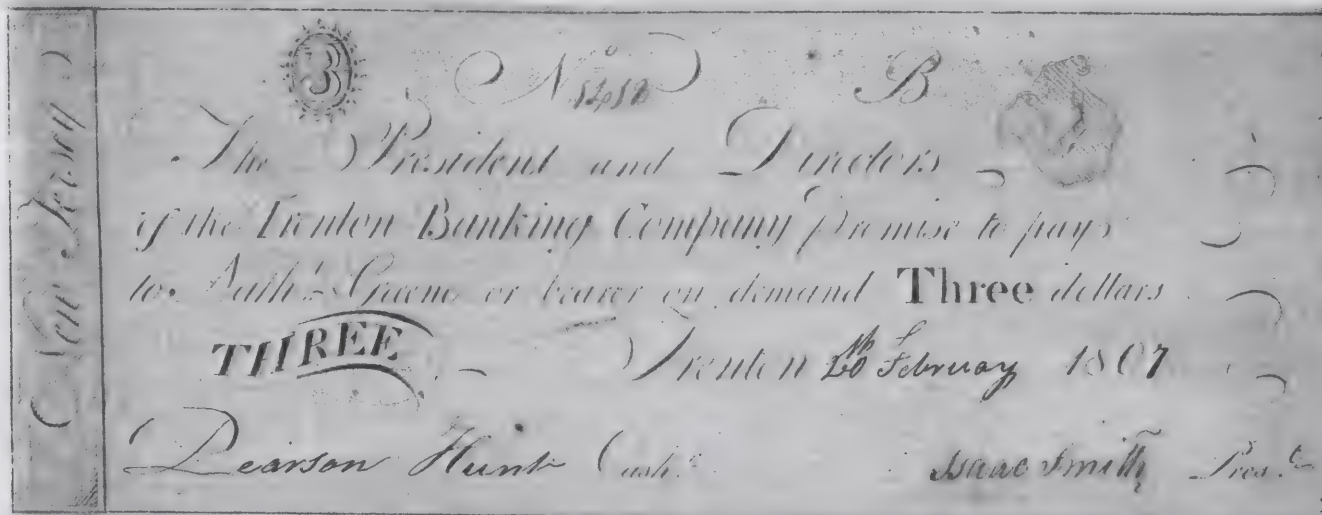 New Jersey
3 No B
The President and Directors
of the Trenton Banking Company promise to pay
to Nath.l Greene or bearer on demand Three dollars
THREE Trenton 20th February 1807
Pearson Hunt Cash.r Isaac Smith Pres.t